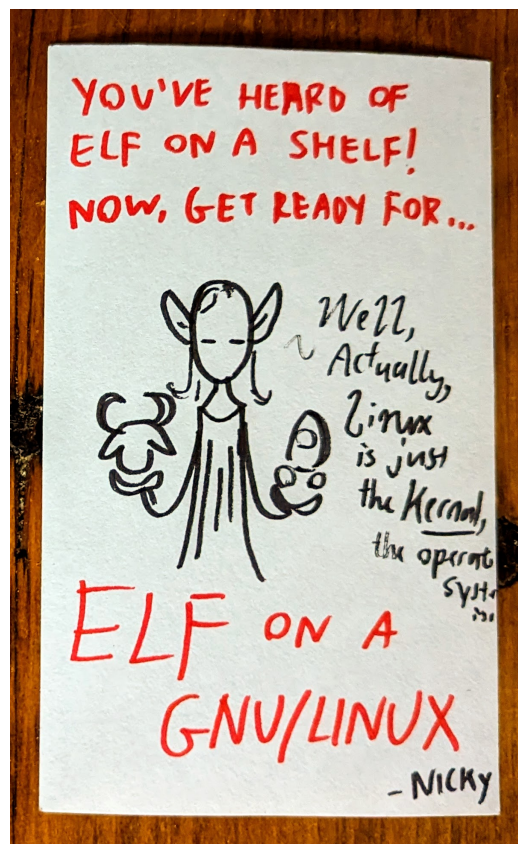 YOU'VE HEARD OF
ELF ON A SHELF!
NOW, GET READY FOR...
Well,
Actually,
Linux
is just
the Kernal,
the operat
Syst
is.
ELF ON A
GNU/LINUX
- NICKY